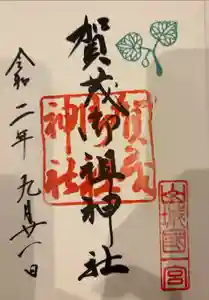 山城國一宮
賀茂御祖神社
賀茂
神社
令和二年九月廿一日